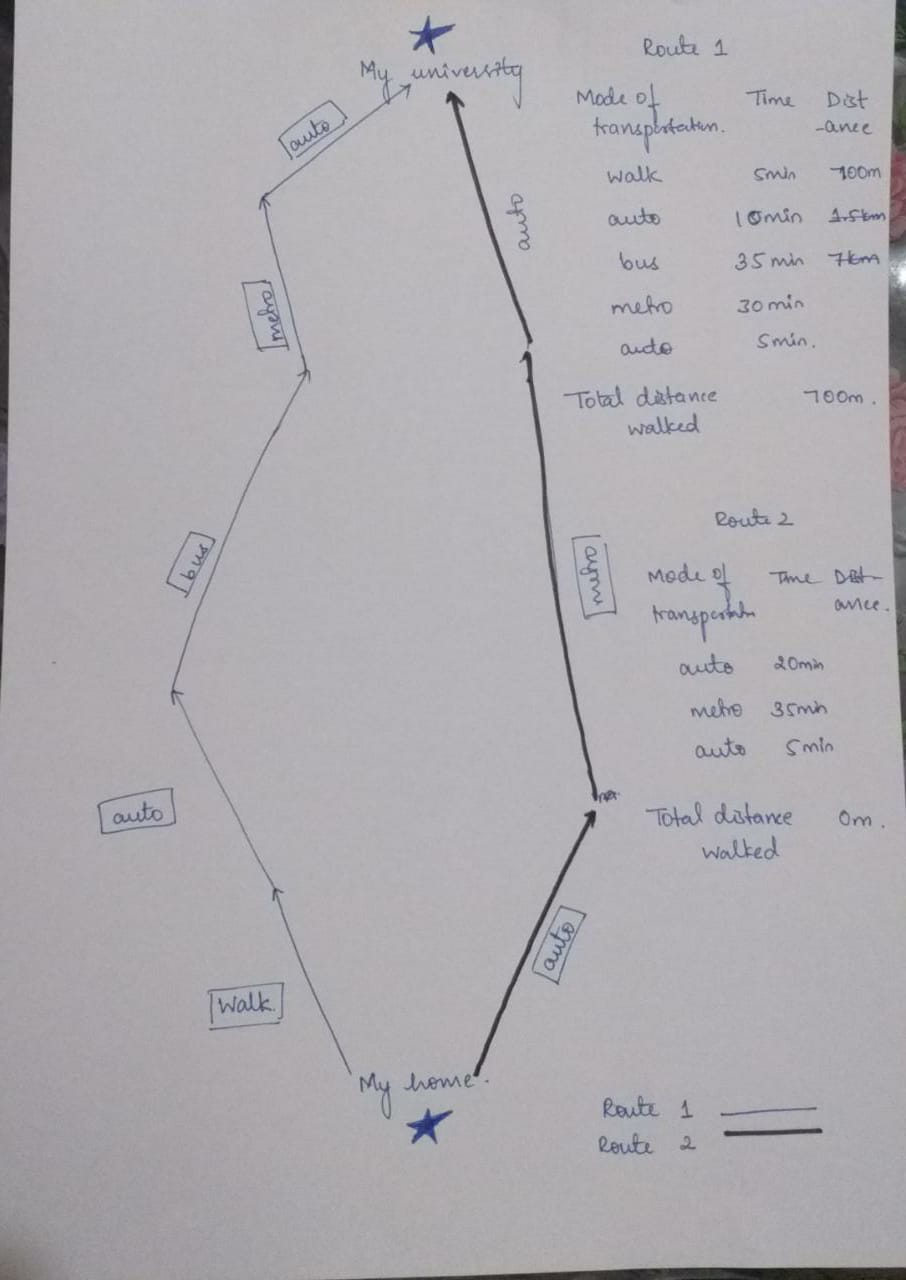 My university
auto
metro
bus
auto
walk.
My home.
auto
metro
auto
Route 1
Mode of Time Dist
transportation. -ance
walk 5min 700m
auto 10min 1.5km
bus 35 min 7km
metro 30 min
auto 5min.
Total distance 700m.
walked
Route 2
Mode of Time Dist-
transportatn ance.
auto 20min
metro 35min
auto 5min
Total distance 0m.
walked
Route 1
Route 2